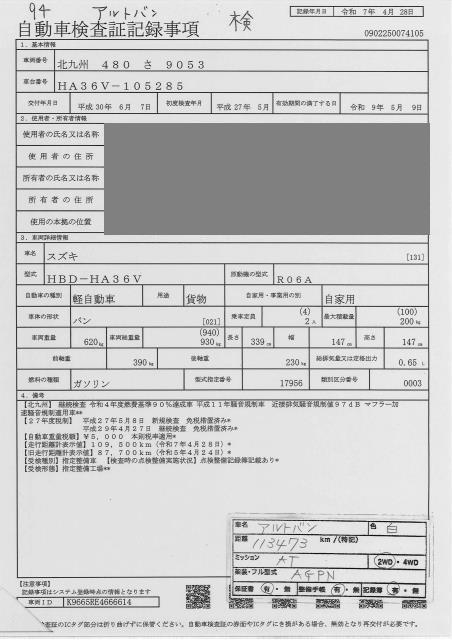 94 アルトバン 検
記録年月日 令和 7年 4月 28日
自動車検査証記録事項
0902250074105
1. 基本情報
車両番号 北九州 480 さ 9053
車台番号 HA36V-105285
交付年月日 平成30年 6月 7日 初度検査年月 平成27年 5月 有効期間の満了する日 令和 9年 5月 9日
2. 使用者・所有者情報
使用者の氏名又は名称
使用者の住所
所有者の氏名又は名称
所有者の住所
使用の本拠の位置
3. 車両詳細情報
車名 スズキ [131]
型式 HBD-HA36V 原動機の型式 R06A
自動車の種別 軽自動車 用途 貨物 自家用・事業用の別 自家用
車体の形状 バン [021] 乗車定員 (4) 2人 最大積載量 (100) 200kg
車両重量 620kg 車両総重量 (940) 930kg 長さ 339cm 幅 147cm 高さ 147cm
前軸重 390kg 後軸重 230kg 総排気量又は定格出力 0.65L
燃料の種類 ガソリン 型式指定番号 17956 類別区分番号 0003
4. 備考
【北九州】 継続検査 令和4年度燃費基準90%達成車 平成11年騒音規制車 近接排気騒音規制値97dB マフラー加
速騒音規制適用車**
【27年度税制】 平成27年5月8日 新規検査 免税措置済み*
平成29年4月27日 継続検査 免税措置済み*
【自動車重量税額】¥5,000 本則税率適用*
【走行距離計表示値】109,500km(令和7年4月28日)*
【旧走行距離計表示値】87,700km(令和5年4月24日)*
【受検種別】指定整備車 【検査時の点検整備実施状況】点検整備記録簿記載あり*
【受検形態】指定整備工場**
車名 アルトバン 色 白
距離 113473 km/(特記)
ミッション AT 2WD・4WD
装・フル型式 AGPN
保証書 有・無 整備手帳 有・無 記録簿 有・無
【注意事項】
記載事項はシステム登録時点の情報となります
車両ID K9665RE4666614
証のICタグ部分は折り曲げずに保管ください。自動車検査証の券面やICタグにき損がある場合、無効となり再交付が必要です。